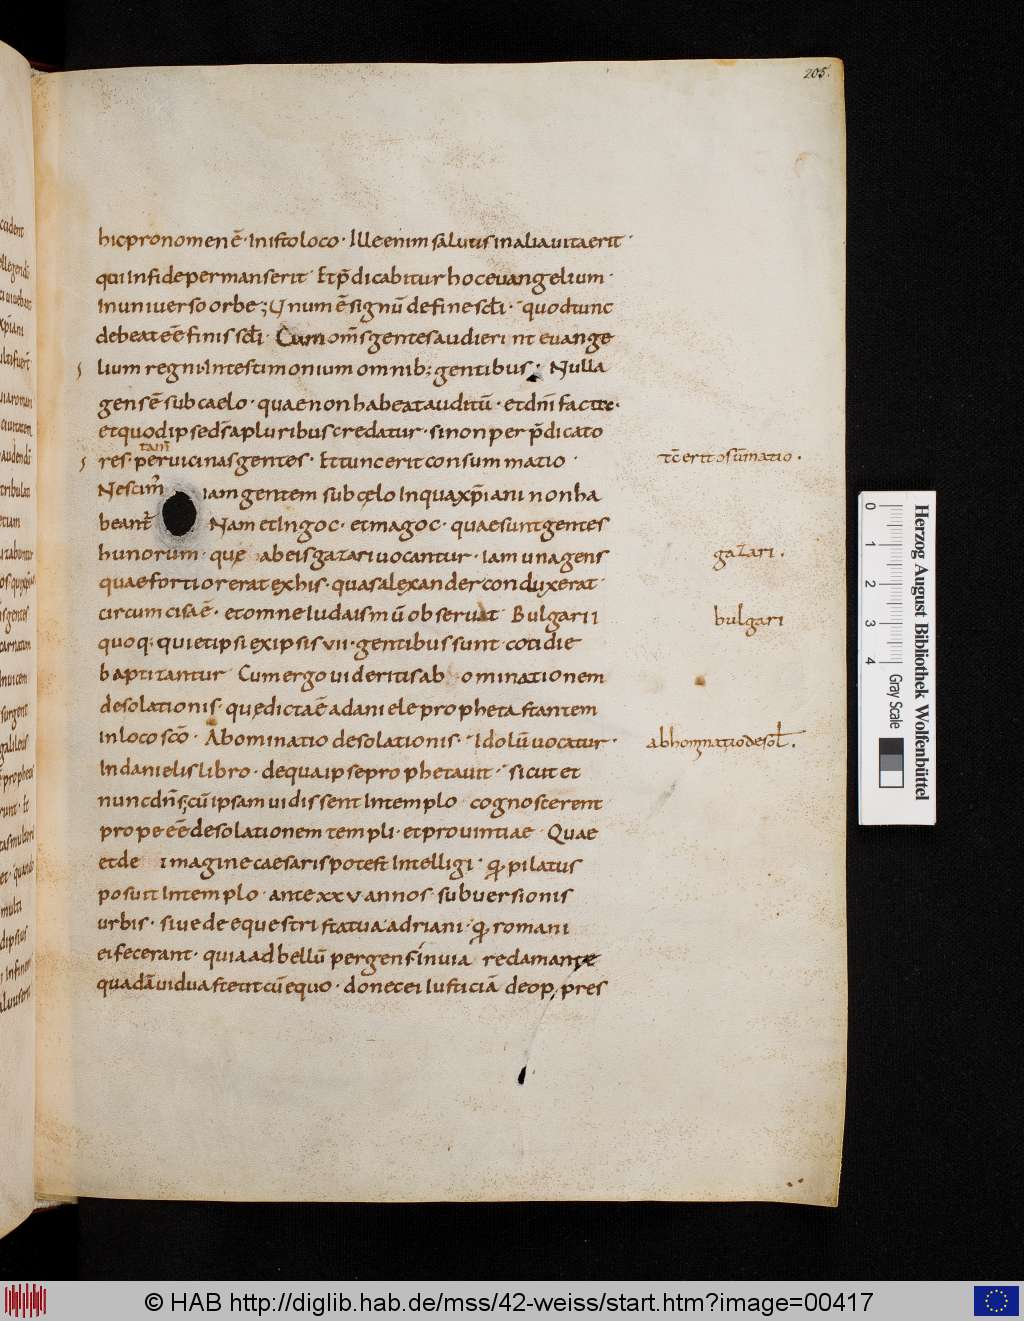 205.
hicpronomenē· Inistoloco· Illeenim saluusinaliauitaerit·
quiinfidepermanserit· Etp̄dicabiturhoceuangelium·
Inuniuersoorbe; Q̣numēsignū definescłi· quodtunc
debeateēfinisscłi· Cum om̄sgentesaudieri nt euange
lium regniIntestimonium omnib; gentibus· Nulla
gensēsubcaelo· quaenonhabeatauditū· etdn̄ifacta·
etquodipsedsapluribuscredatur· sinonper p̄dicato
tam̄
res· peruicinasgentes· Ettuncerit consummatio·
tc̄erit
Nescim̄ iamgentem subcęlo Inquaxp̄iani nonha
beant̄ Nam etIngoc· etmagoc· quaesuntgentes
hunorum· que abeisgazariuocantur· iam unagens
gazari·
quaefortiorerat exhis· quasalexander conduxerat·
circumcisaē· etomneIudaismū obseruat Bulgarii
bulgari
quoq; quietipsiexipsis vii· gentibussunt cotidie
baptizantur Cum ergo uideritisab ominationem
desolationis· quędictaē adaniele propheta stantem
inloco sc̄o· Abominatio desolationis· Idolū uocatur·
Indanielislibro· dequaipseprophetauit· sicut et
nuncdn̄s; cū ipsam uidissent Intemplo cognoscerent
prope eē desolationem templi· etprouintiae Quae
etde imagine caesarispotest Intelligi· q̄ pilatus
posuit Intemplo· ante xxv annos subuersionis
urbis· siue de equestri statua adriani· q̄ romani
eifecerant· quiaadbellū pergens inuia reclamante
quadā uidua stetit cū equo· donecei Iusticiā deop, pres
© HAB http://diglib.hab.de/mss/42-weiss/start.htm?image=00417
Herzog August Bibliothek Wolfenbüttel
Gray Scale
0 1 2 3 4